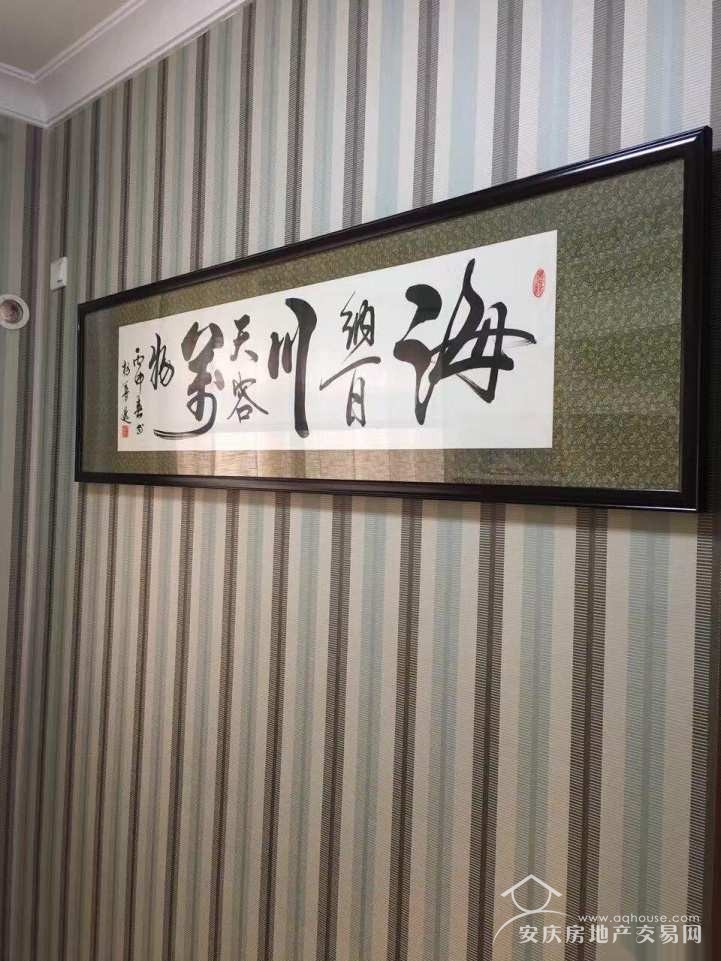 海纳百川天容萬物
丙申春书
www.aqhouse.com
安庆房地产交易网